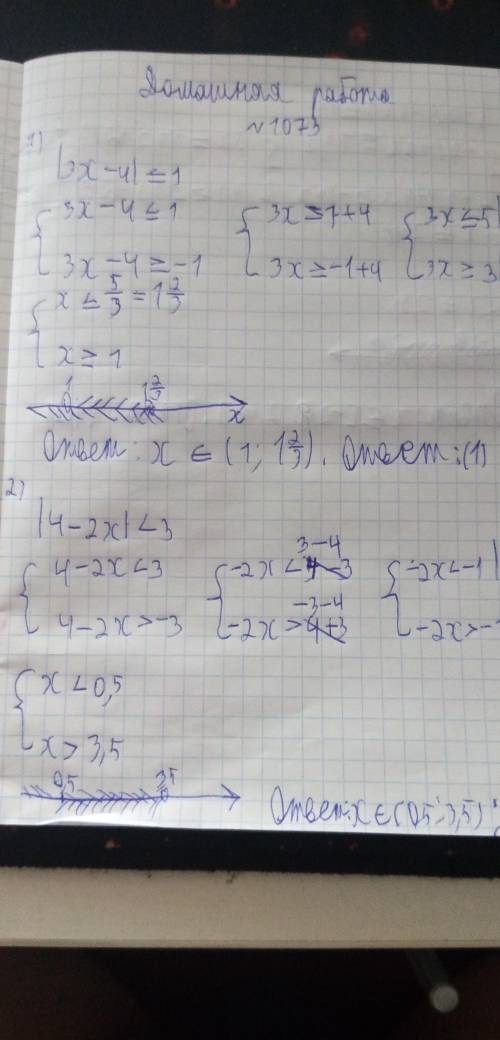 Домашняя работа
№1073
1)
|3x-4| ≤ 1
{ 3x-4 ≤ 1 { 3x ≤ 1+4 { 3x ≤ 5 |
3x-4 ≥ -1 3x ≥ -1+4 3x ≥ 3
{ x ≤ 5/3 = 1 2/3
x ≥ 1
1 1 2/3
x
Ответ: x ∈ (1; 1 2/3). Ответ: (1)
2)
|4-2x| < 3
3-4
{ 4-2x < 3 { -2x < { -2x < -1 |
-3-4
4-2x > -3 -2x > -2x > -
{ x < 0,5
x > 3,5
0,5 3,5
Ответ: x ∈ (0,5; 3,5)